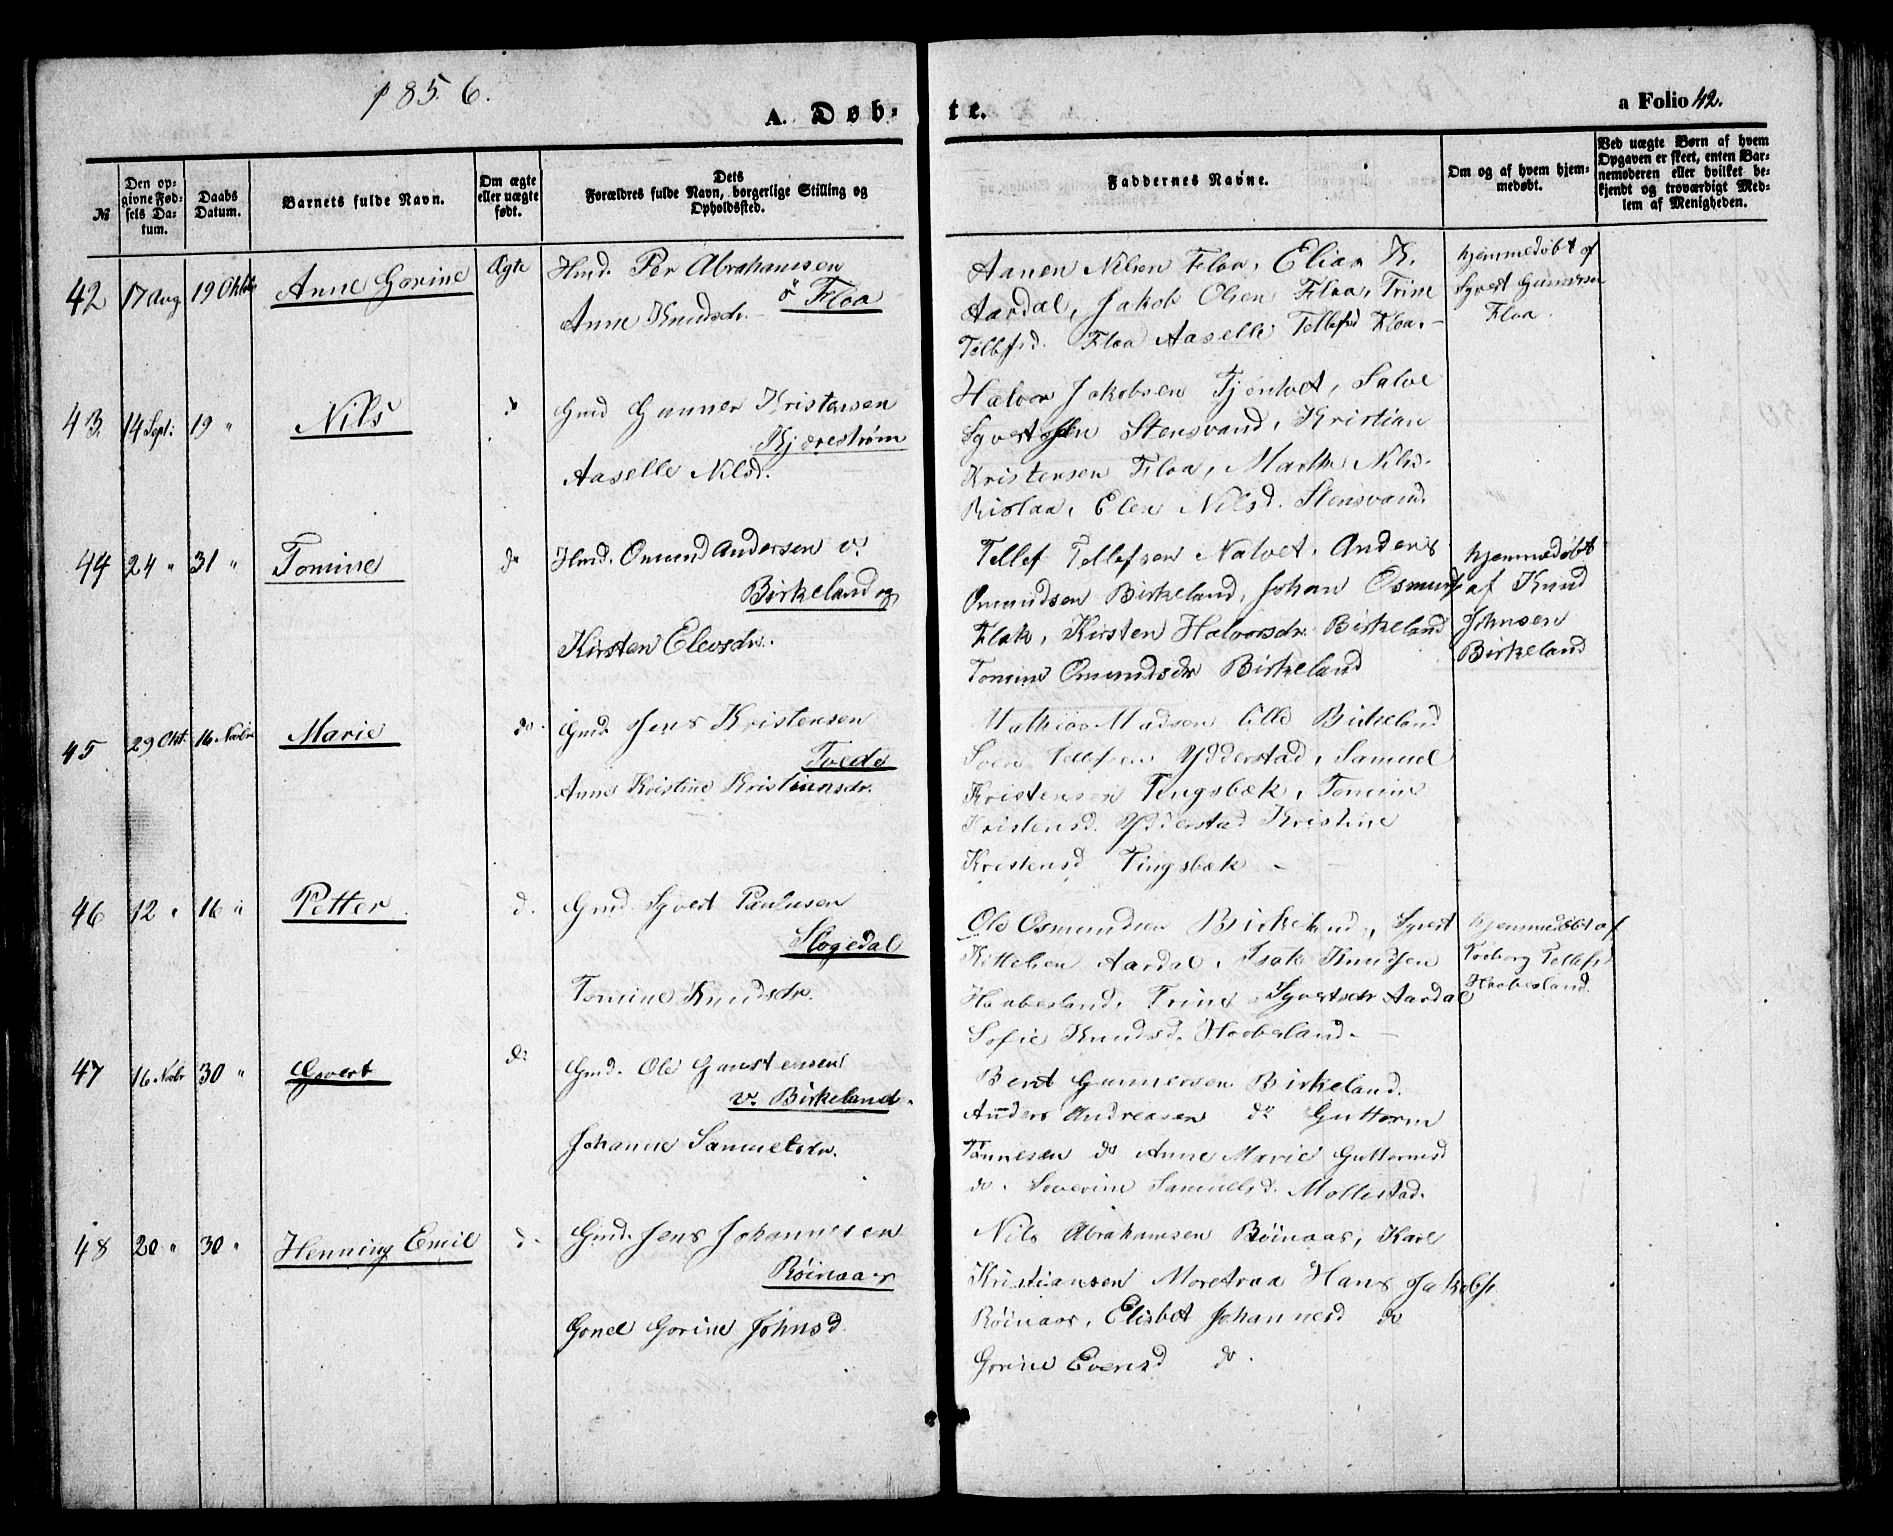 1856.
A. Døb-
te.
a Folio 42.
№
Den op-
givne Fød-
sels Da-
tum.
Daabs
Datum.
Barnets fulde Navn.
Om ægte
eller uægte
født.
Dets
Forældres fulde Navn, borgerlige Stilling og
Opholdssted.
Faddernes Navne.
Om og af hvem hjem-
medøbt.
Ved uægte Børn af hvem
Opgaven er skeet, enten Bar-
nemoderen eller hvilket be-
kjendt og troværdigt Med-
lem af Menigheden.
42 17 Aug 19 Oktbr Anne Gorine Ægte
Hmd. Per Abrahamsen
ö Floa
Anne Knudsdr.
Aanen Nilsen Floa, Elias K.
Aardal, Jakob Olsen Floa, Trine
Tellefsd. Floa Aaselle Tellefsd Floa.
hjemmedøbt af
Syvert Gunersen
Floa.
43. 14 Sept: 19 " Nils do
Gmd Gunner Kristensen
Kjærestrøm
Aaselle Nilsd.
Halvor Jakobsen Tjømtvet, Salve
Syvertsen Stensvand, Kristian
Kristensen Floa, Marthe Nilsd.
Rislaa, Elen Nilsd. Stensvand.
44 24 " 31 " Tomine do
Hmd. Omund Andersen v.
Birkeland og
Kirsten Elevsdr.
Tellef Tellefsen Natvet, Anders
Omundsen Birkeland, Johan Osmunds
Flak, Kirsten Halvorsdr. Birkeland
Tomine Omundsdr Birkeland
hjemmedøbt
af Knud
Johnsen
Birkeland
45 29 Okt. 16 Novbr Marie do.
Gmd. Jens Kristensen
Tvede
Anne Kristine Kristiansdr.
Mathias Madsen lille Birkeland
Sven Tellefsen Ydderstad, Samuel
Kristensen Tingsbæk, Tomine
Kristensd. Ydderstad Kristine
Kristensd Tingsbæk
46 12 " 16 " Petter d.
Gmd. Syvert Paulusen
Slogedal
Tomine Knudsdr.
Ole Osmundsen Birkeland, Syvert
Kittelsen Aardal, Isak Knudsen
Haabesland, Trine Syvertsdr Aardal
Sofie Knudsd. Haabesland.
hjemmedøbt af
Torborg Tellefsd
Haabesland.
47 16 Novbr 30 " Gjvert do
Gmd. Ole Gunstensen
v. Birkeland.
Johanne Samuelsdr.
Bent Gunnersen Birkeland.
Anders Andreasen do Guttorm
Tønnesen do Anne Marie Guttormsd
do. Severine Samuelsd. Mollestad.
48 20 " 30 " Henning Emil d.
Gmd. Jens Johannesen
Røinaas
Gonel Gorine Johnsd.
Nils Abrahamsen Røinaas, Karl
Kristiansen Moretraa Hans Jakobs.
Røinaas, Elisbet Johannesd do
Gorine Evensd do.